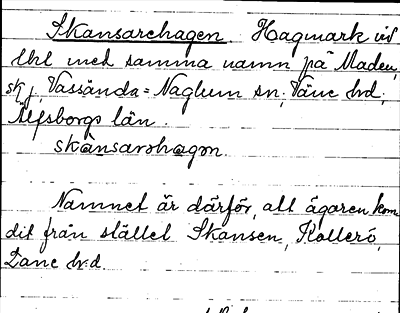 Skansarehagen. Hagmark vid
lht med samma namn på Maden,
skj, Vassända=Naglum sn, Väne hd,
Älfsborgs län.
skànsarəhagən.
Namnet är därför, att ägaren kom
dit från stället Skansen, Kollerö,
Tane hd.